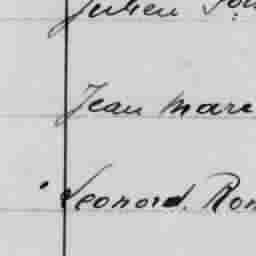 Julien
Jean Marc
Leonard. Ron